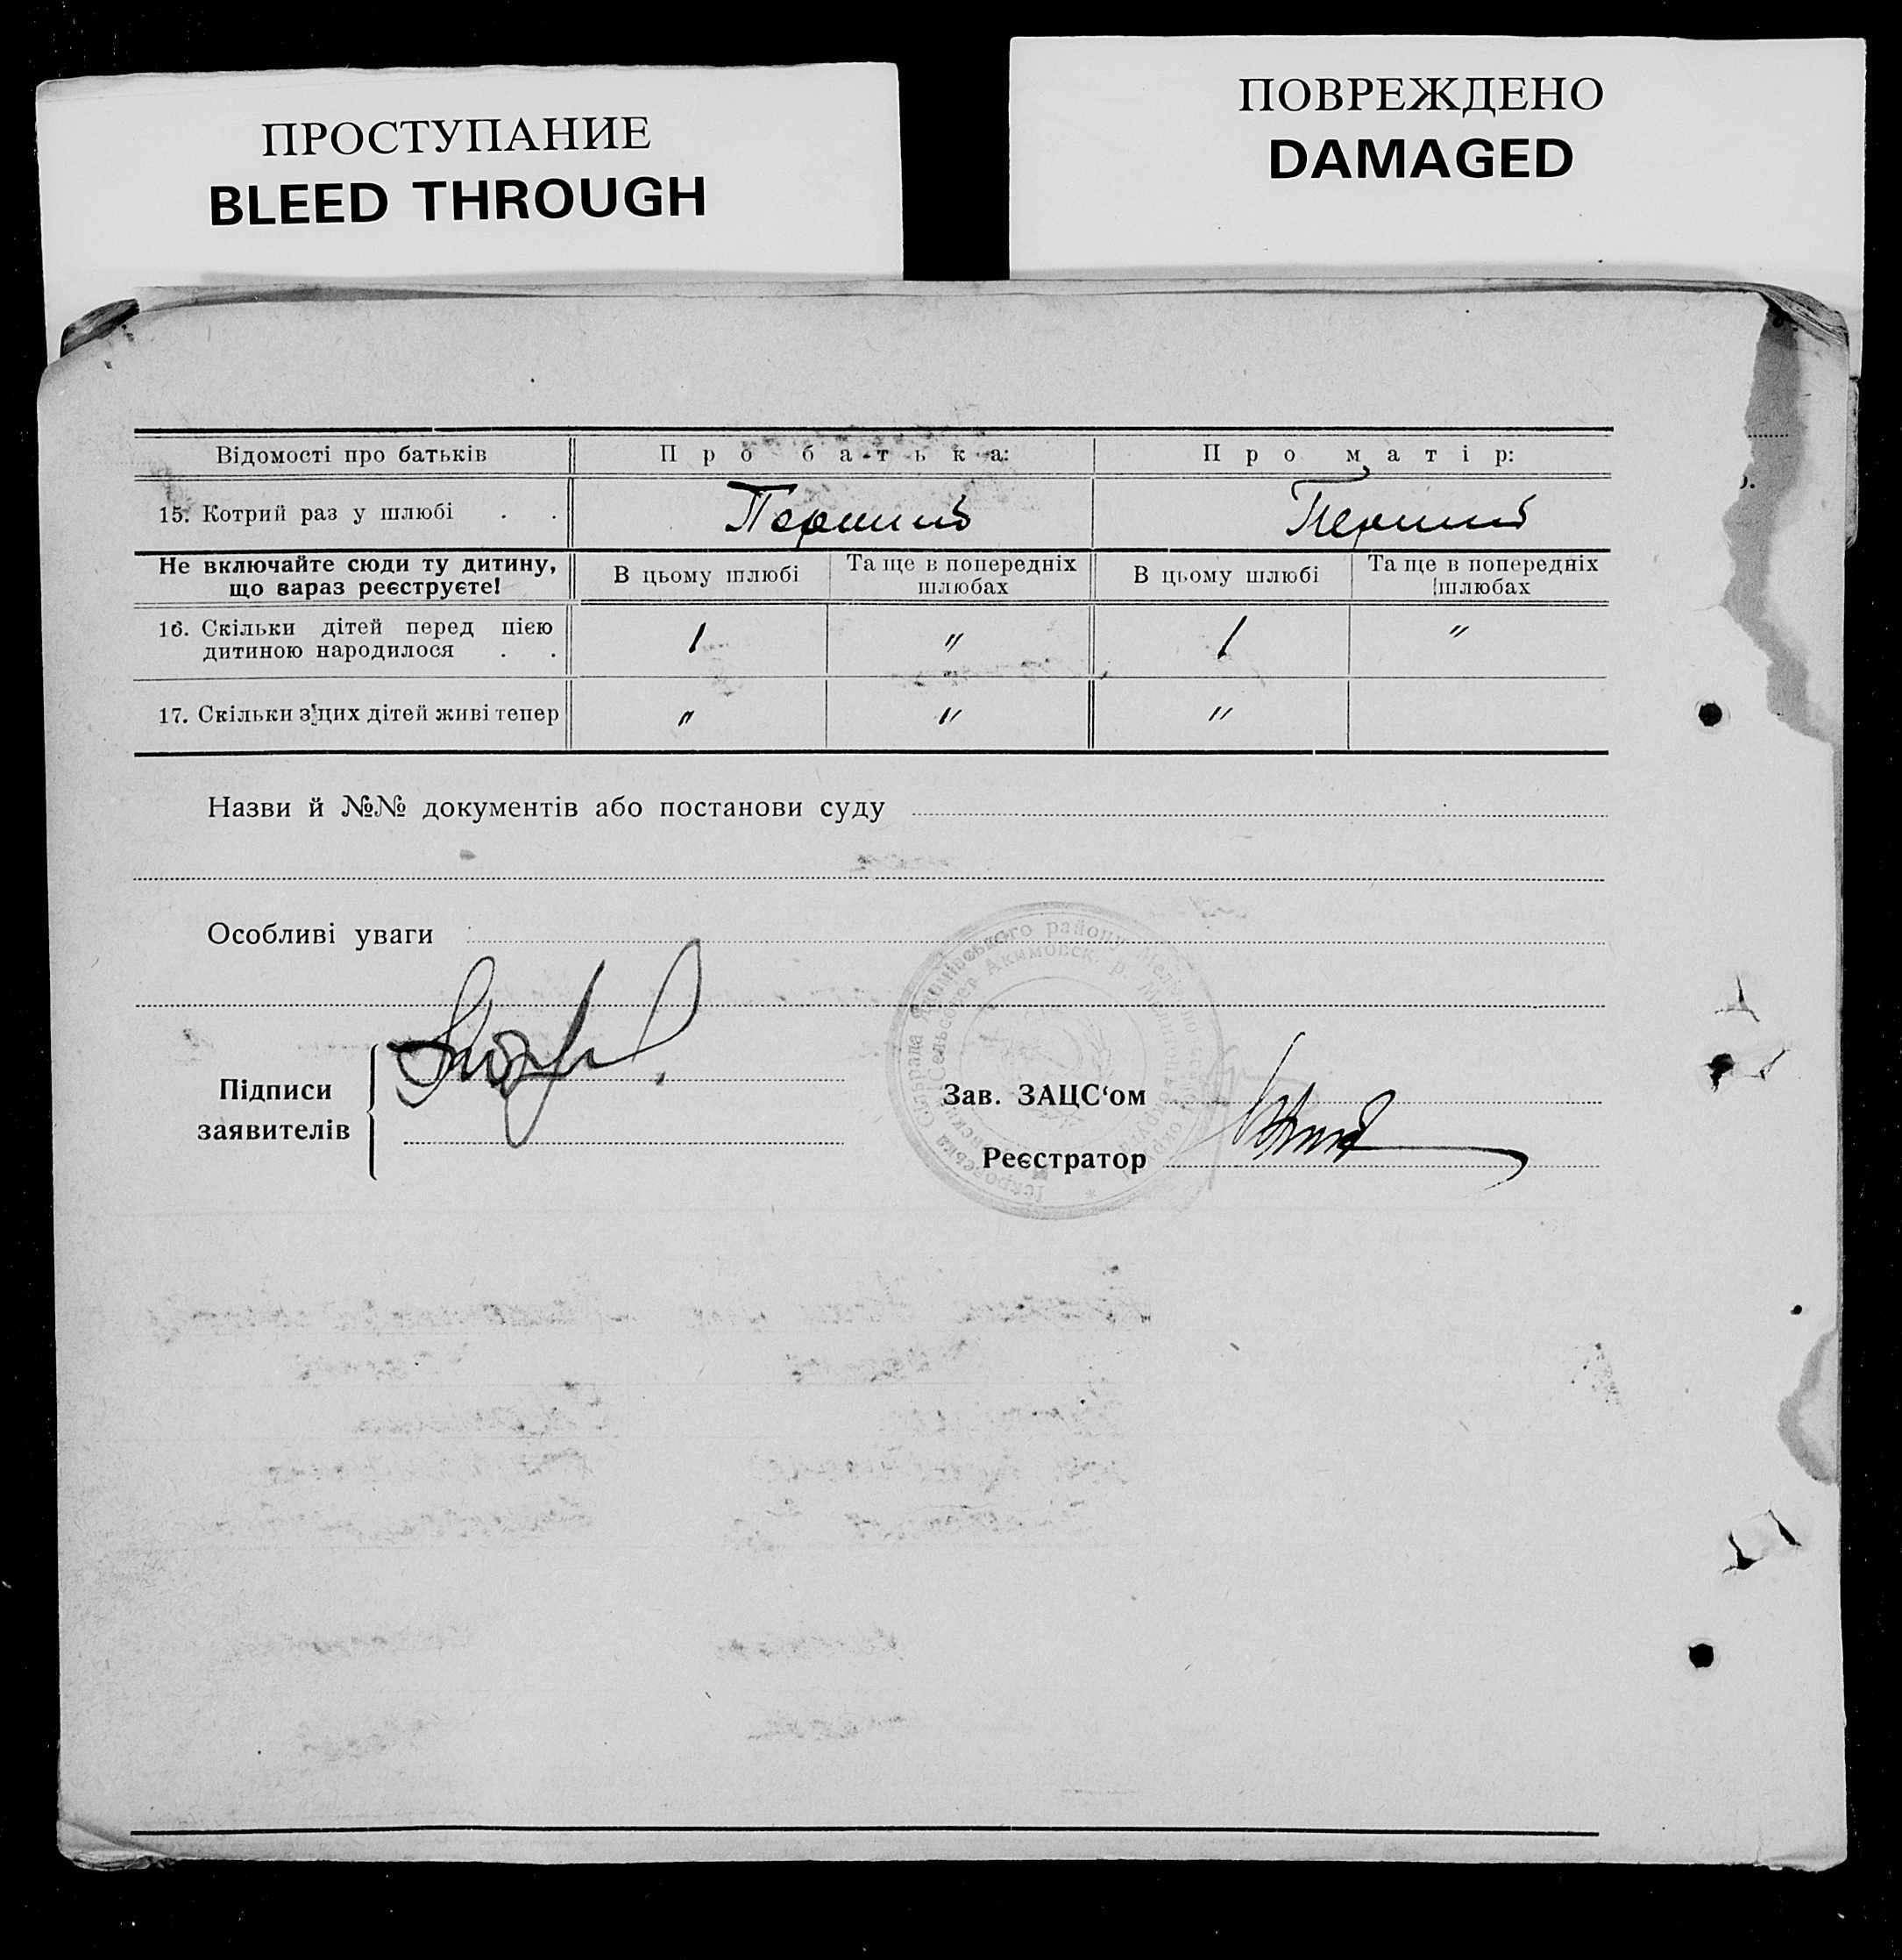 ПРОСТУПАНИЕ
BLEED THROUGH
ПОВРЕЖДЕНО
DAMAGED
Відомості про батьків Про батька: Про матір:
15. Котрий раз у шлюбі . . Перший Перший
Не включайте сюди ту дитину, що зараз реєструєте! В цьому шлюбі Та ще в попередніх шлюбах В цьому шлюбі Та ще в попередніх шлюбах
16. Скільки дітей перед цією дитиною народилося . . 1 " 1 "
17. Скільки з цих дітей живі тепер " " "
Назви й №№ документів або постанови суду
Особливі уваги
Підписи
заявителів
Зав. ЗАЦС‘ом
Реєстратор